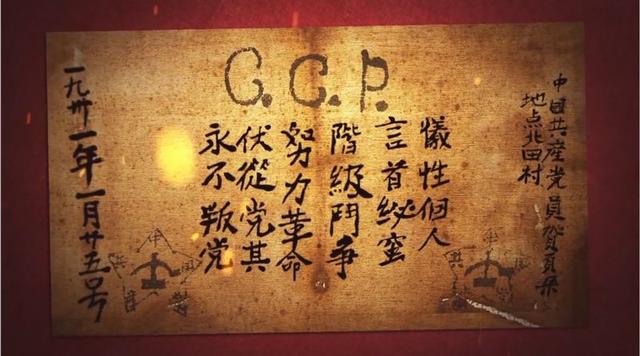 G.C.P.
中国共産党員賀頁朵
地点北田村
犧性個人
言首秘蜜
階級鬥争
努力革命
伏從党其
永不叛党
一九卅一年一月廿五号